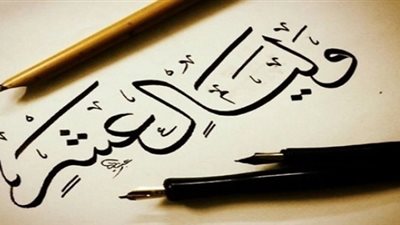 وليال عشر